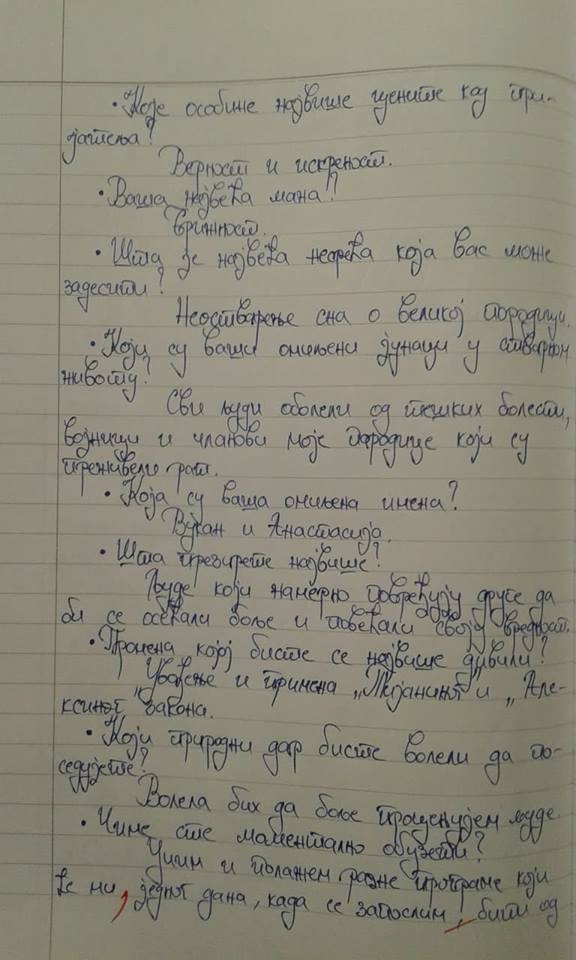 • Које особине највише цените код при-
јатеља?
Верност и искреност.
• Ваша највећа мана?
Брижност.
• Шта је највећа несрећа која вас може
задесити?
Неостварење сна о великој породици.
• Који су ваши омиљени јунаци у стварном
животу?
Сви људи оболели од тешких болести,
војници и чланови моје породице који су
преживели рат.
• Која су ваша омиљена имена?
Вукан и Анастасија.
• Шта презирете највише?
Људе који намерно повређују друге да
би се осећали боље и повећали своју вредност.
• Промена којој бисте се највише дивили?
Увођење и примена „Тијаниног" и „Але-
ксиног" закона.
• Који природни дар бисте волели да по-
седујете?
Волела бих да боље процењујем људе.
• Чиме сте моментално обузети?
Учим и полажем разне програме који
ће ми, једног дана, када се запослим, бити од